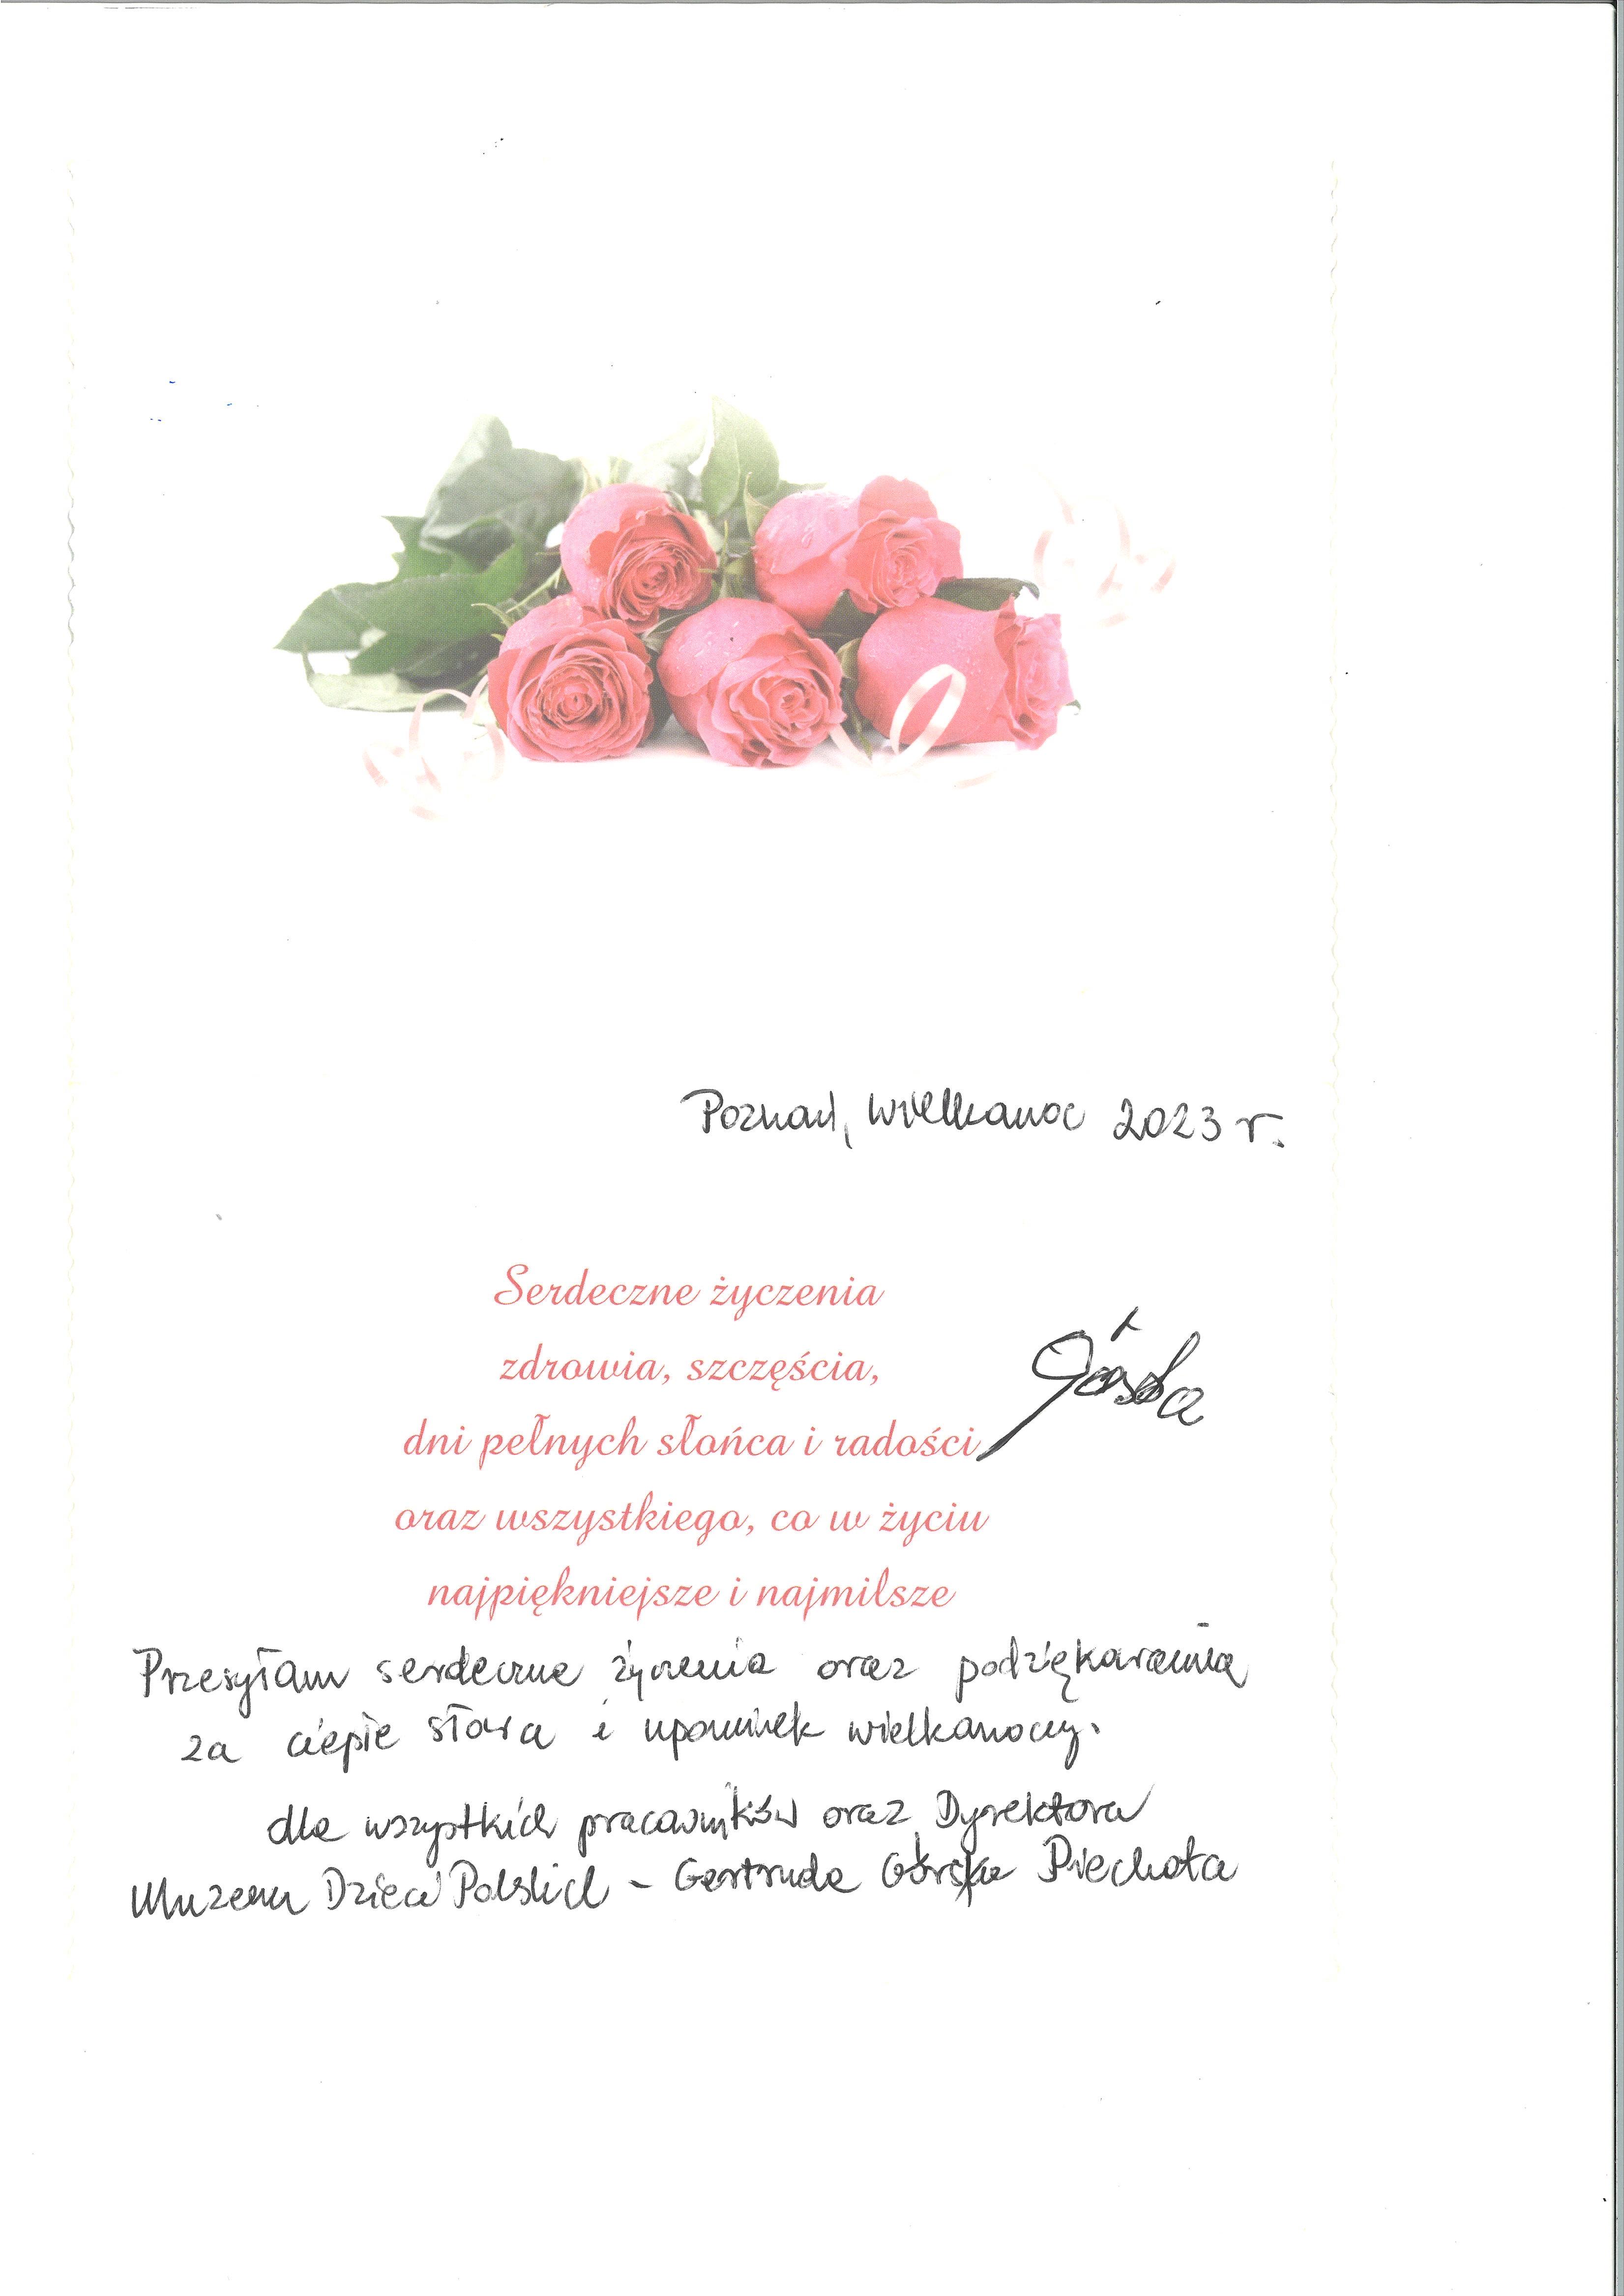 Poznań, Wielkanoc 2023 r.
Serdeczne życzenia
zdrowia, szczęścia,
Górska
dni pełnych słońca i radości
oraz wszystkiego, co w życiu
najpiękniejsze i najmilsze
Przesyłam serdeczne życzenia oraz podziękowania
za ciepłe słowa i upominek wielkanocny.
dla wszystkich pracowników oraz Dyrektora
Muzeum Dzieci Polskich - Gertruda Górska Piechota